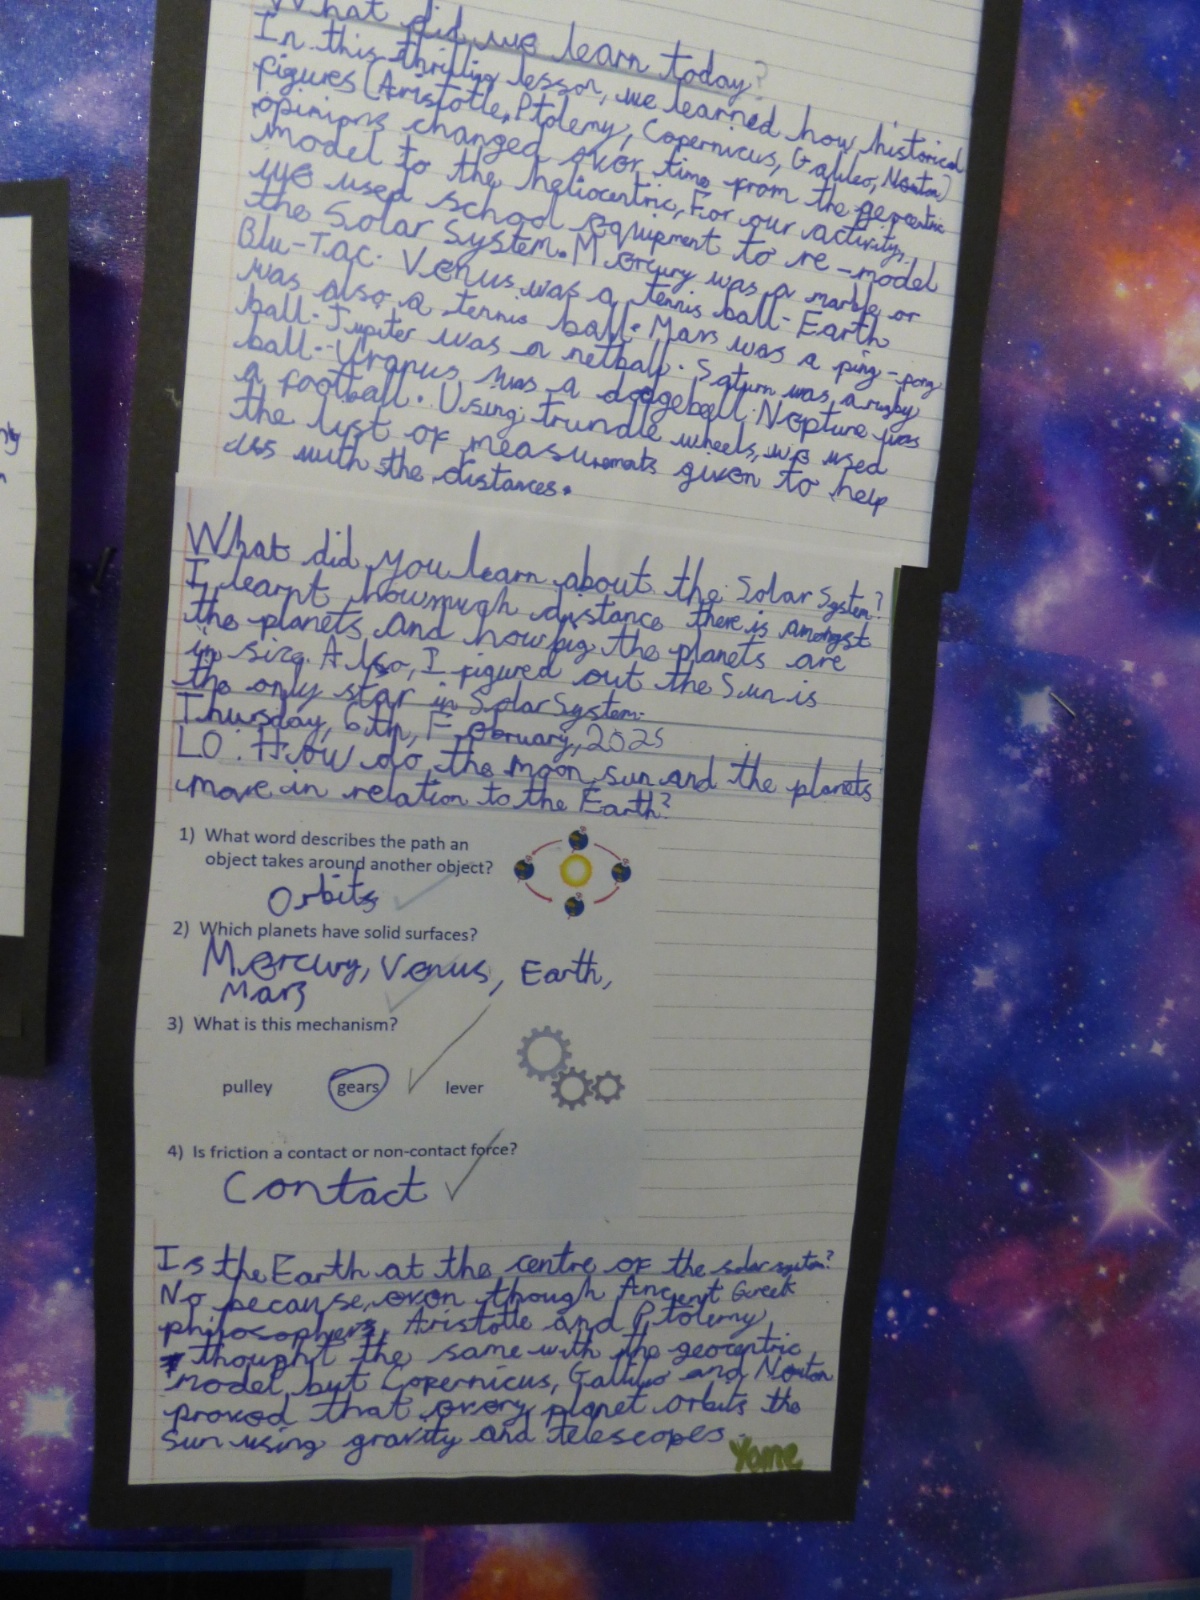 What did we learn today?
In this thrilling lesson, we learned how historical
figures (Aristotle, Ptolemy, Copernicus, Galileo, Newton)
opinions changed over time from the geocentric
model to the heliocentric. For our activity,
we used school equipment to re-model
the Solar System. Mercury was a marble or
Blu-Tac. Venus was a tennis ball. Earth
was also a tennis ball. Mars was a ping-pong
ball. Jupiter was a netball. Saturn was a rugby
ball. Uranus was a dodgeball. Nepture was
a football. Using trundle wheels, we used
the lyst of measurements given to help
us with the distances.
What did you learn about the Solar System?
I learnt how much distance there is amongst
the planets and how big the planets are
in size. Also, I figured out the Sun is
the only star in Solar System.
Thursday, 6th, February, 2025
LO: How do the moon, sun and the planets
move in relation to the Earth?
1) What word describes the path an
object takes around another object?
Orbits
2) Which planets have solid surfaces?
Mercury, Venus, Earth,
Mars
3) What is this mechanism?
pulley gears lever
4) Is friction a contact or non-contact force?
Contact
Is the Earth at the centre of the solar system?
No because, even though Ancient Greek
philosophers, Aristotle and Ptolemy
thought the same with the geocentric
model, but Copernicus, Galileo and Newton
proved that every planet orbits the
Sun using gravity and telescopes.